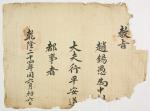 敎旨
趙錫愚爲中
大夫行平安道
都事者
乾隆二十四年閏六月初六